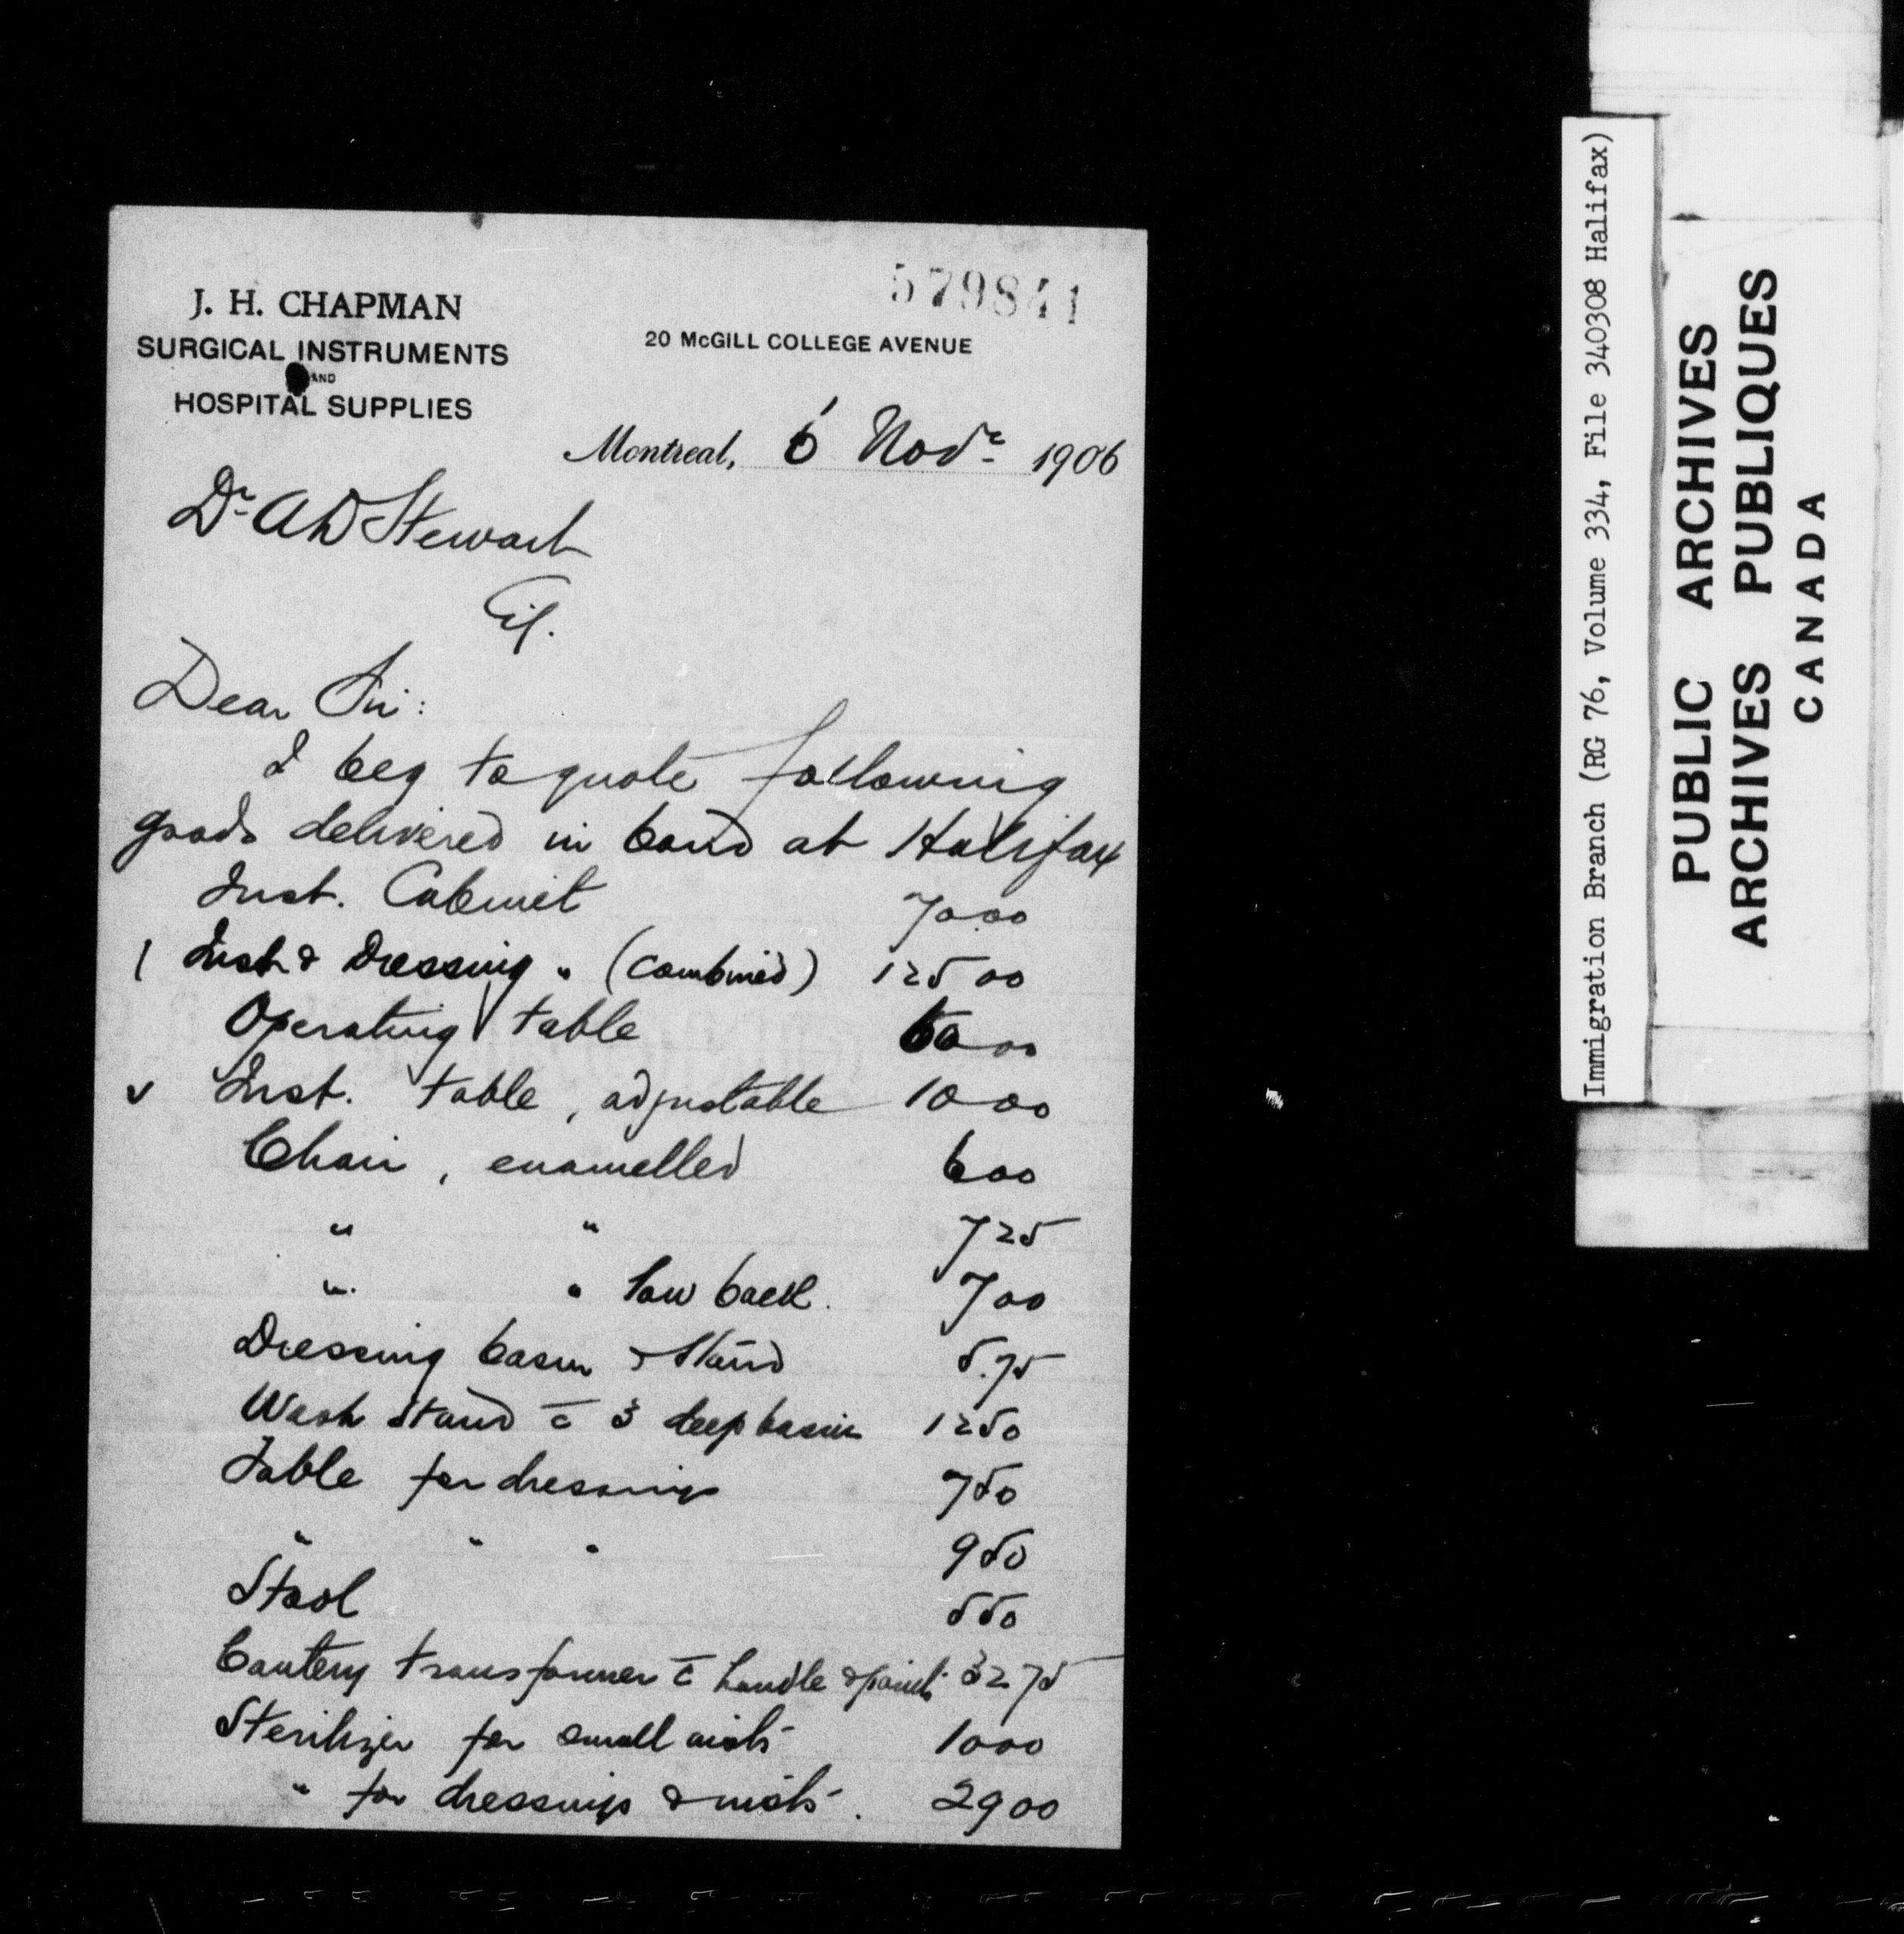 579841
J. H. CHAPMAN
SURGICAL INSTRUMENTS
AND
HOSPITAL SUPPLIES
20 McGILL COLLEGE AVENUE
Montreal, 6 Novr 1906
Dr A D Stewart
Dear Sir:
I beg to quote following
goods delivered in bond at Halifax
Inst. Cabinet 70.00
1 Inst & Dressing " (combined) 125 00
Operating table 00
v Inst. table, adjustable 10 00
Chair, enamelled 6 00
" " 7 25
" " low back. 7 00
Dressing basin & stand 5.75
Wash stand c̄ 3 deep basins 12 50
Table for dressings 7 50
" " " 9 50
Stool 5 50
Cautery transformer c̄ handle & points 32 75
Sterilizer for small insts 10 00
" for dressings & insts. 29 00
Immigration Branch (RG 76, Volume 334, File 340308 Halifax)
PUBLIC ARCHIVES
ARCHIVES PUBLIQUES
CANADA